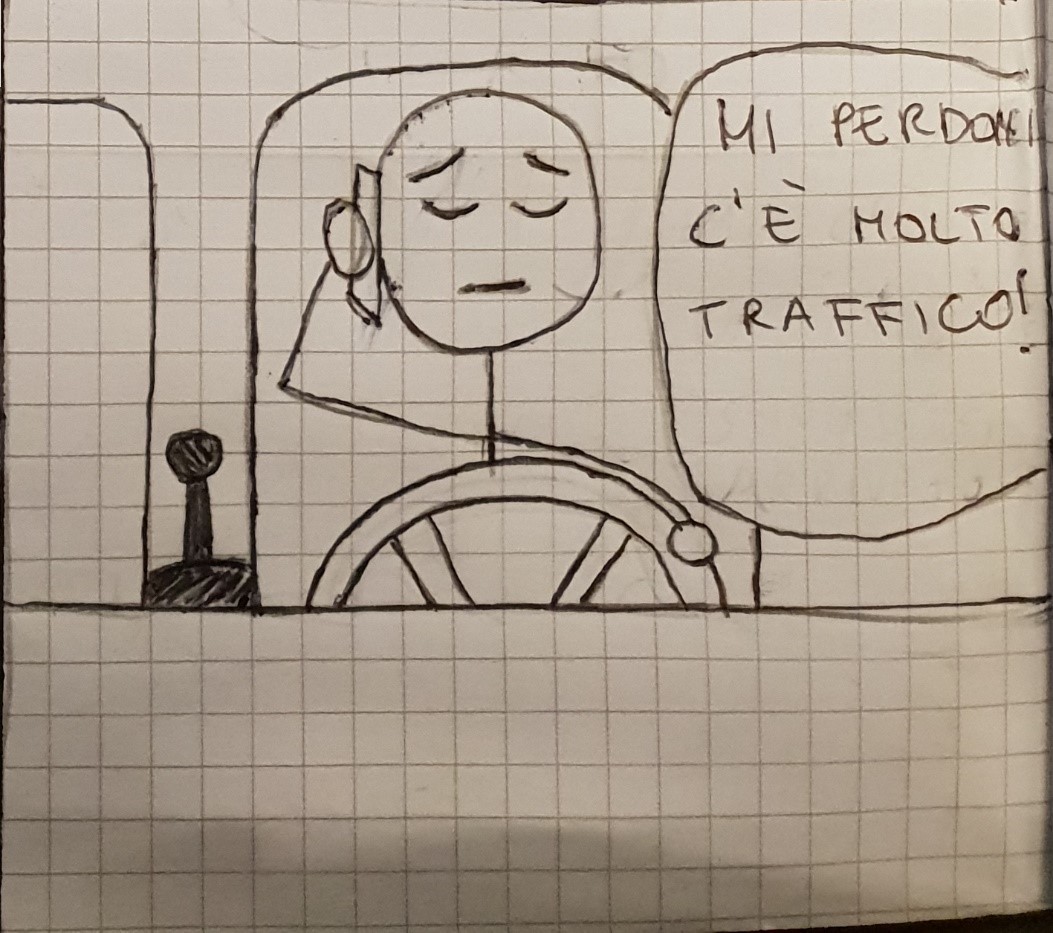 MI PERDONI
C'È MOLTO
TRAFFICO!